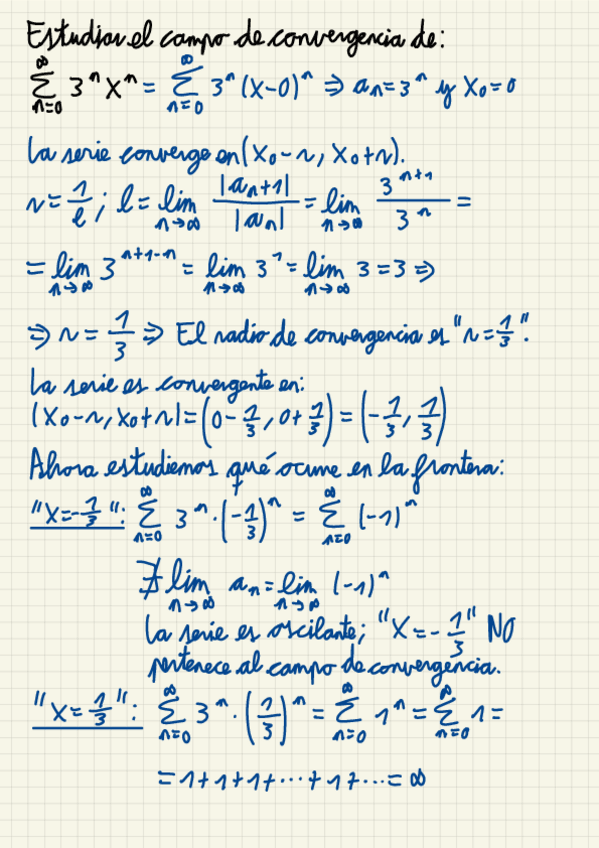 Estudiar el campo de convergencia de:
∑_{n=0}^{∞} 3^n x^n = ∑_{n=0}^{∞} 3^n (x-0)^n ⇒ a_n = 3^n y x_0 = 0
La serie converge en (x_0 - r, x_0 + r).
r = 1/l ; l = lim_{n→∞} |a_{n+1}| / |a_n| = lim_{n→∞} 3^{n+1} / 3^n =
= lim_{n→∞} 3^{n+1-n} = lim_{n→∞} 3^1 = lim_{n→∞} 3 = 3 ⇒
⇒ r = 1/3 ⇒ El radio de convergencia es "r = 1/3".
La serie es convergente en:
(x_0 - r, x_0 + r) = (0 - 1/3, 0 + 1/3) = (-1/3, 1/3)
Ahora estudiemos qué ocurre en la frontera:
"x = -1/3": ∑_{n=0}^{∞} 3^n · (-1/3)^n = ∑_{n=0}^{∞} (-1)^n
∄ lim_{n→∞} a_n = lim_{n→∞} (-1)^n
La serie es oscilante; "x = -1/3" NO
pertenece al campo de convergencia.
"x = 1/3": ∑_{n=0}^{∞} 3^n · (1/3)^n = ∑_{n=0}^{∞} 1^n = ∑_{n=0}^{∞} 1 =
= 1 + 1 + 1 + ··· + 1 + ··· = ∞